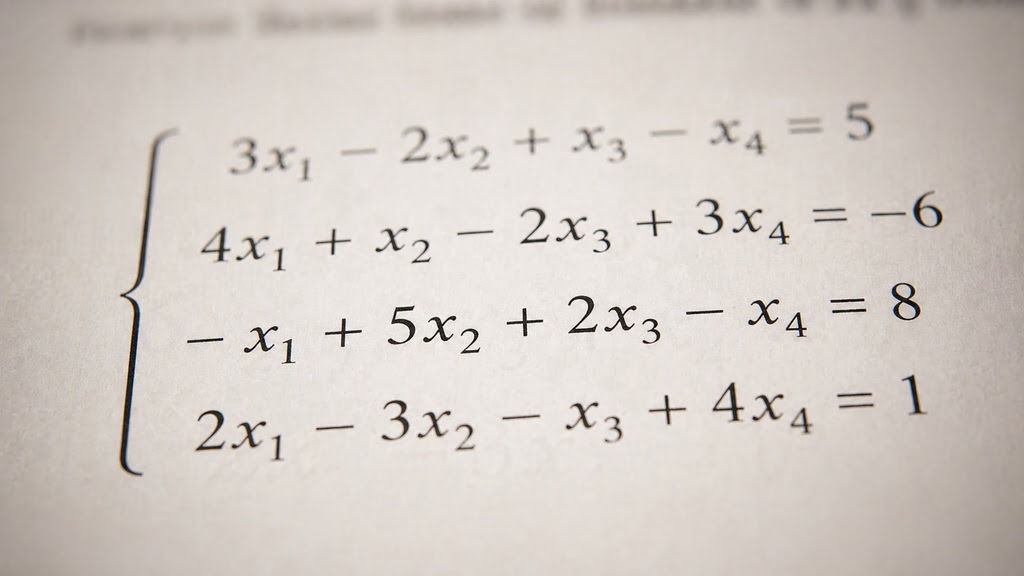 3x₁ − 2x₂ + x₃ − x₄ = 5
4x₁ + x₂ − 2x₃ + 3x₄ = −6
− x₁ + 5x₂ + 2x₃ − x₄ = 8
2x₁ − 3x₂ − x₃ + 4x₄ = 1